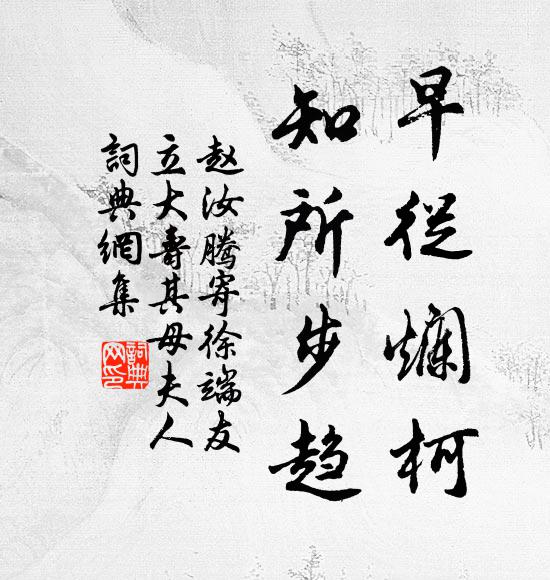 早從爛柯
知所步趋
赵汝騰寄徐端友
立大壽其母夫人
詞典網集
詞典
网印